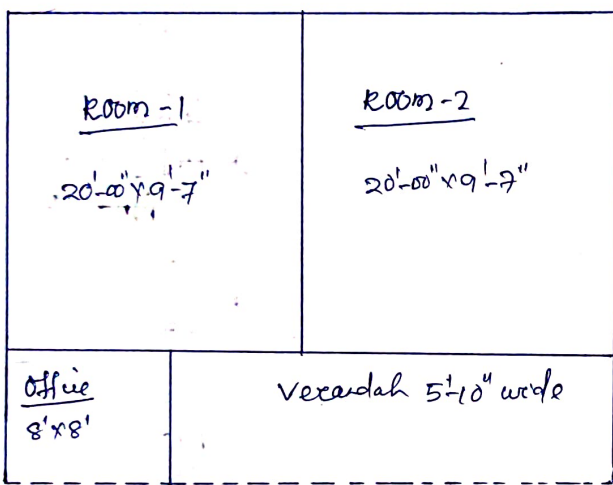 Room-1
20'-00"x9'-7"
Room-2
20'-00"x9'-7"
Office
8'x8'
Verandah 5'-10" wide